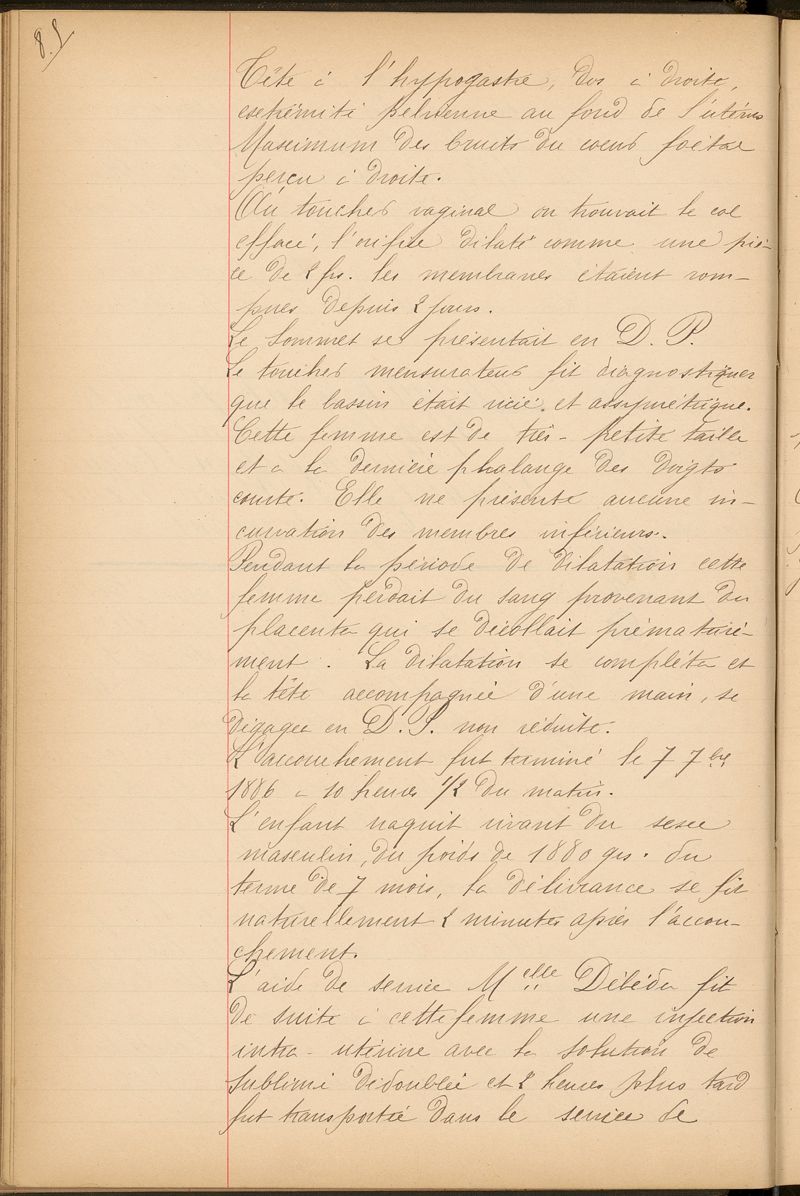 85
Tête à l'hypogastre, dos à droite,
extrémité pelvienne au fond de l'utérus
Maximum des bruits du coeur foetal
perçu à droite.
Au toucher vaginal on trouvait le col
effacé, l'orifice dilaté comme une piè-
ce de 2 frs. les membranes étaient rom-
pues depuis 2 jours.
Le Sommet se présentait en D. P.
Le toucher mensurateur fit diagnostiquer
que le bassin était vicié et assymétrique.
Cette femme est de très-petite taille
et a la dernière phalange des doigts
courte. Elle ne présente aucune in-
curvation des membres inférieurs.
Pendant la période de dilatation cette
femme perdait du sang provenant du
placenta qui se décollait prématuré-
ment. La dilatation se compléta et
la tête accompagnée d'une main, se
dégagea en D. P. non réduite.
L'accouchement fut terminé le 7 7bre
1886 à 10 heures 1/2 du matin.
L'enfant naquit vivant du sexe
masculin, du poids de 1880 grs. du
terme de 7 mois, la délivrance se fit
naturellement 2 minutes après l'accou-
chement.
L'aide de service Melle Débéda fit
de suite à cette femme une injection
intra-utérine avec la solution de
Sublimé dédoublée et 2 heures plus tard
fut transportée dans le service de